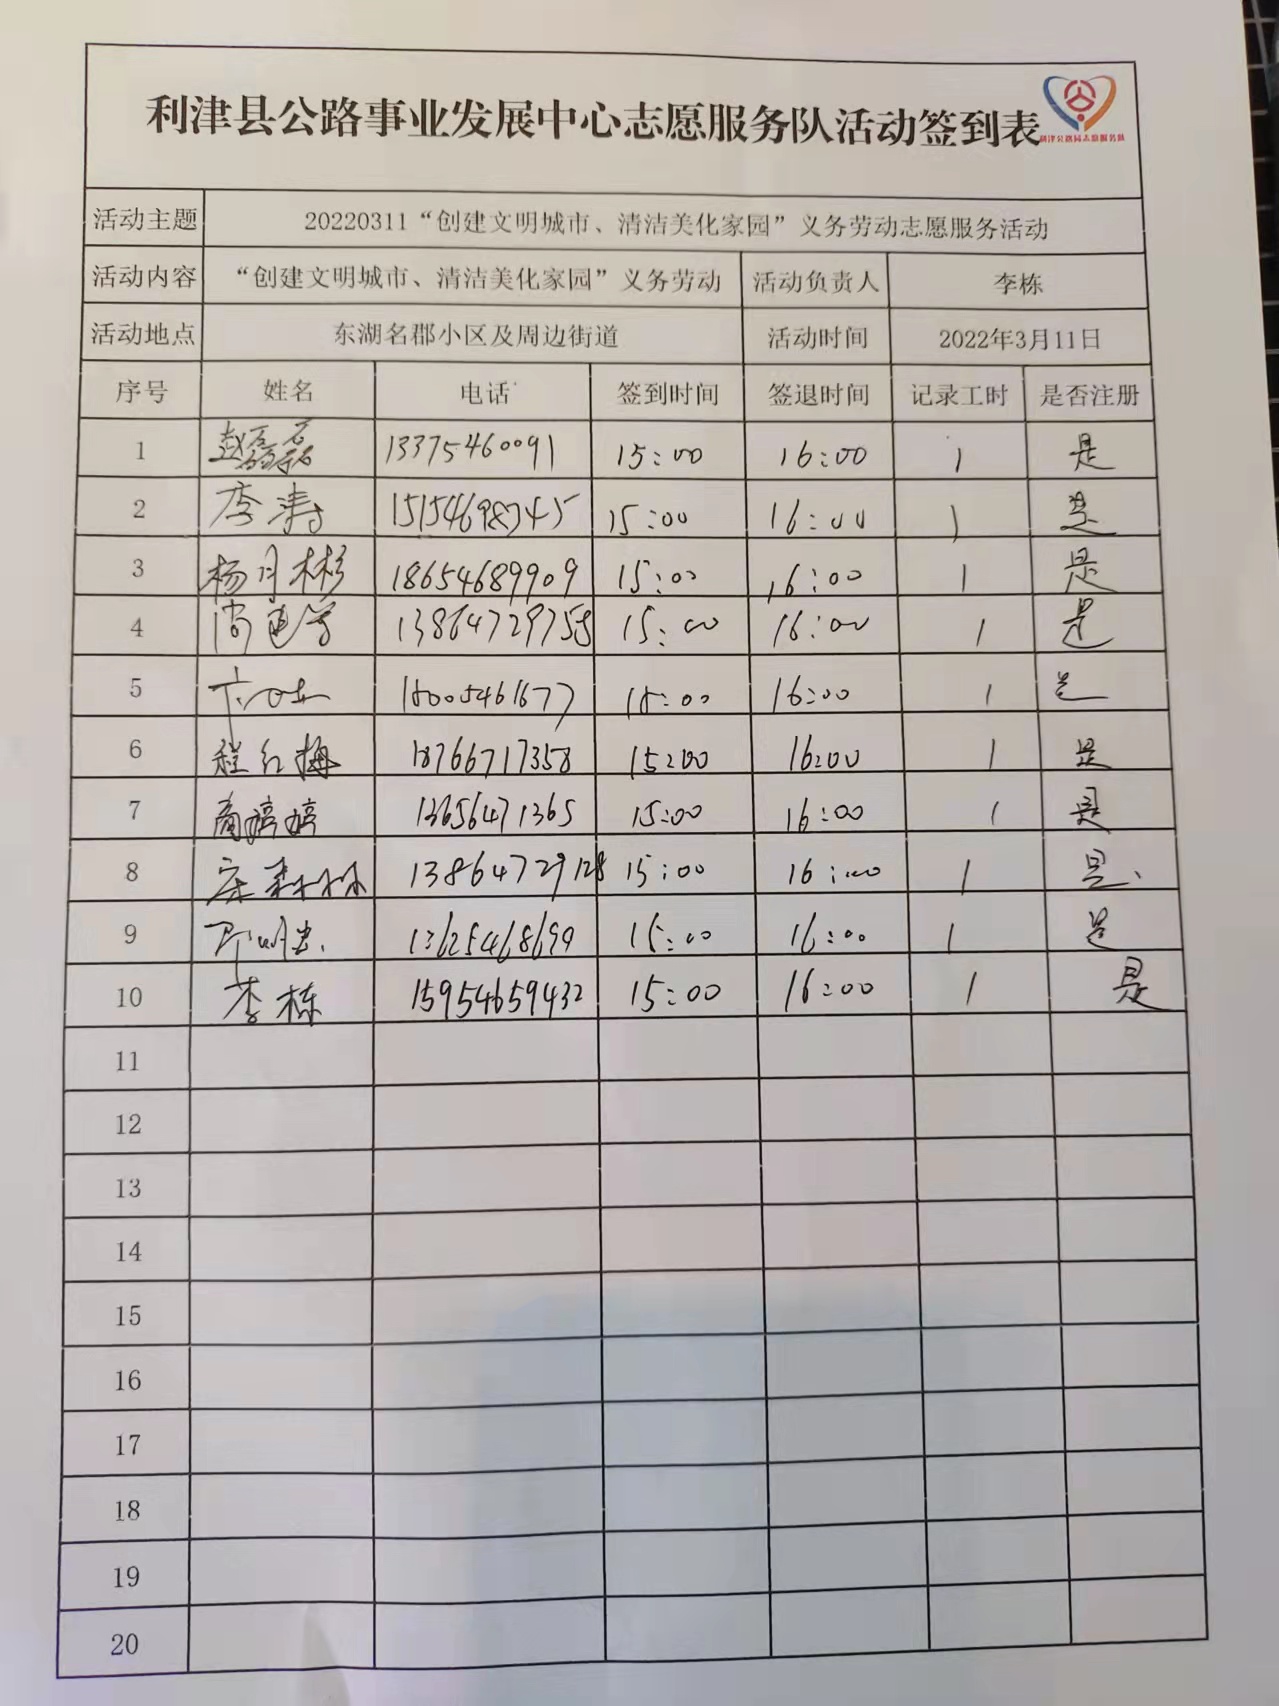 利津县公路事业发展中心志愿服务队活动签到表
利津公路局志愿服务队
活动主题 20220311“创建文明城市、清洁美化家园”义务劳动志愿服务活动
活动内容 “创建文明城市、清洁美化家园”义务劳动 活动负责人 李栋
活动地点 东湖名郡小区及周边街道 活动时间 2022年3月11日
序号 姓名 电话 签到时间 签退时间 记录工时 是否注册
1 赵磊磊 13375460091 15:00 16:00 1 是
2 李涛 15154698745 15:00 16:00 1 是
3 杨月彬 18654689909 15:00 16:00 1 是
4 13864729755 15:00 16:00 1 是
5 18005461677 15:00 16:00 1 是
6 程红梅 18766717358 15:00 16:00 1 是
7 商婷婷 13656471365 15:00 16:00 1 是
8 13864729128 15:00 16:00 1 是
9 13625468699 15:00 16:00 1 是
10 李栋 15954659432 15:00 16:00 1 是
11
12
13
14
15
16
17
18
19
20